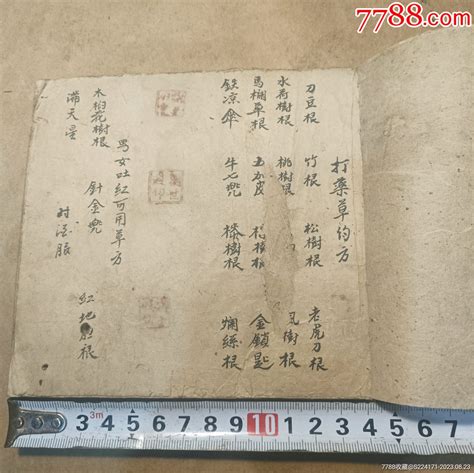 7788.com
打藥草約方
刀豆根 竹根 松樹根 老虎刀根
水荷樹根 桃樹根 樹根
馬蝴草根 五加皮 根 金鎖匙
鉄凉傘 牛七兜 樹根 爛絲根
男女吐紅可用草方
木槿花樹根 針金兜 紅地胆根
滿天星 酒服
3m
7 8 9 10 1 2 3 4 5 6 7
7788收藏@S224171-2023.08.22